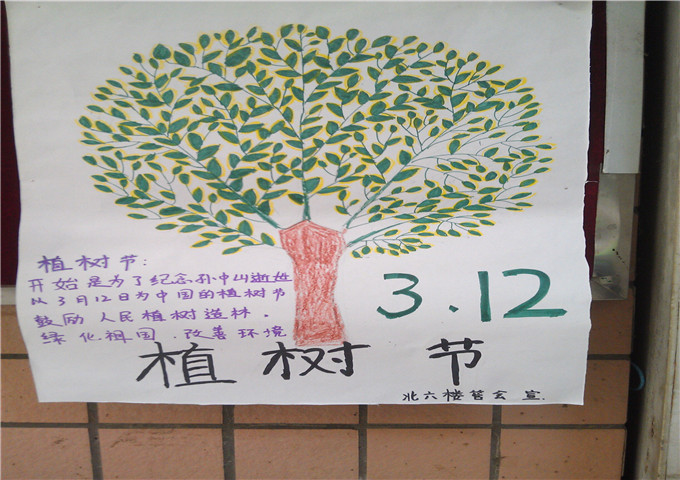 植树节:
开始是为了纪念孙中山逝
以3月12日为中国的植树节
鼓励人民植树造林.
绿化祖国.改善环境
3.12
植树节
北六楼管会 宣.